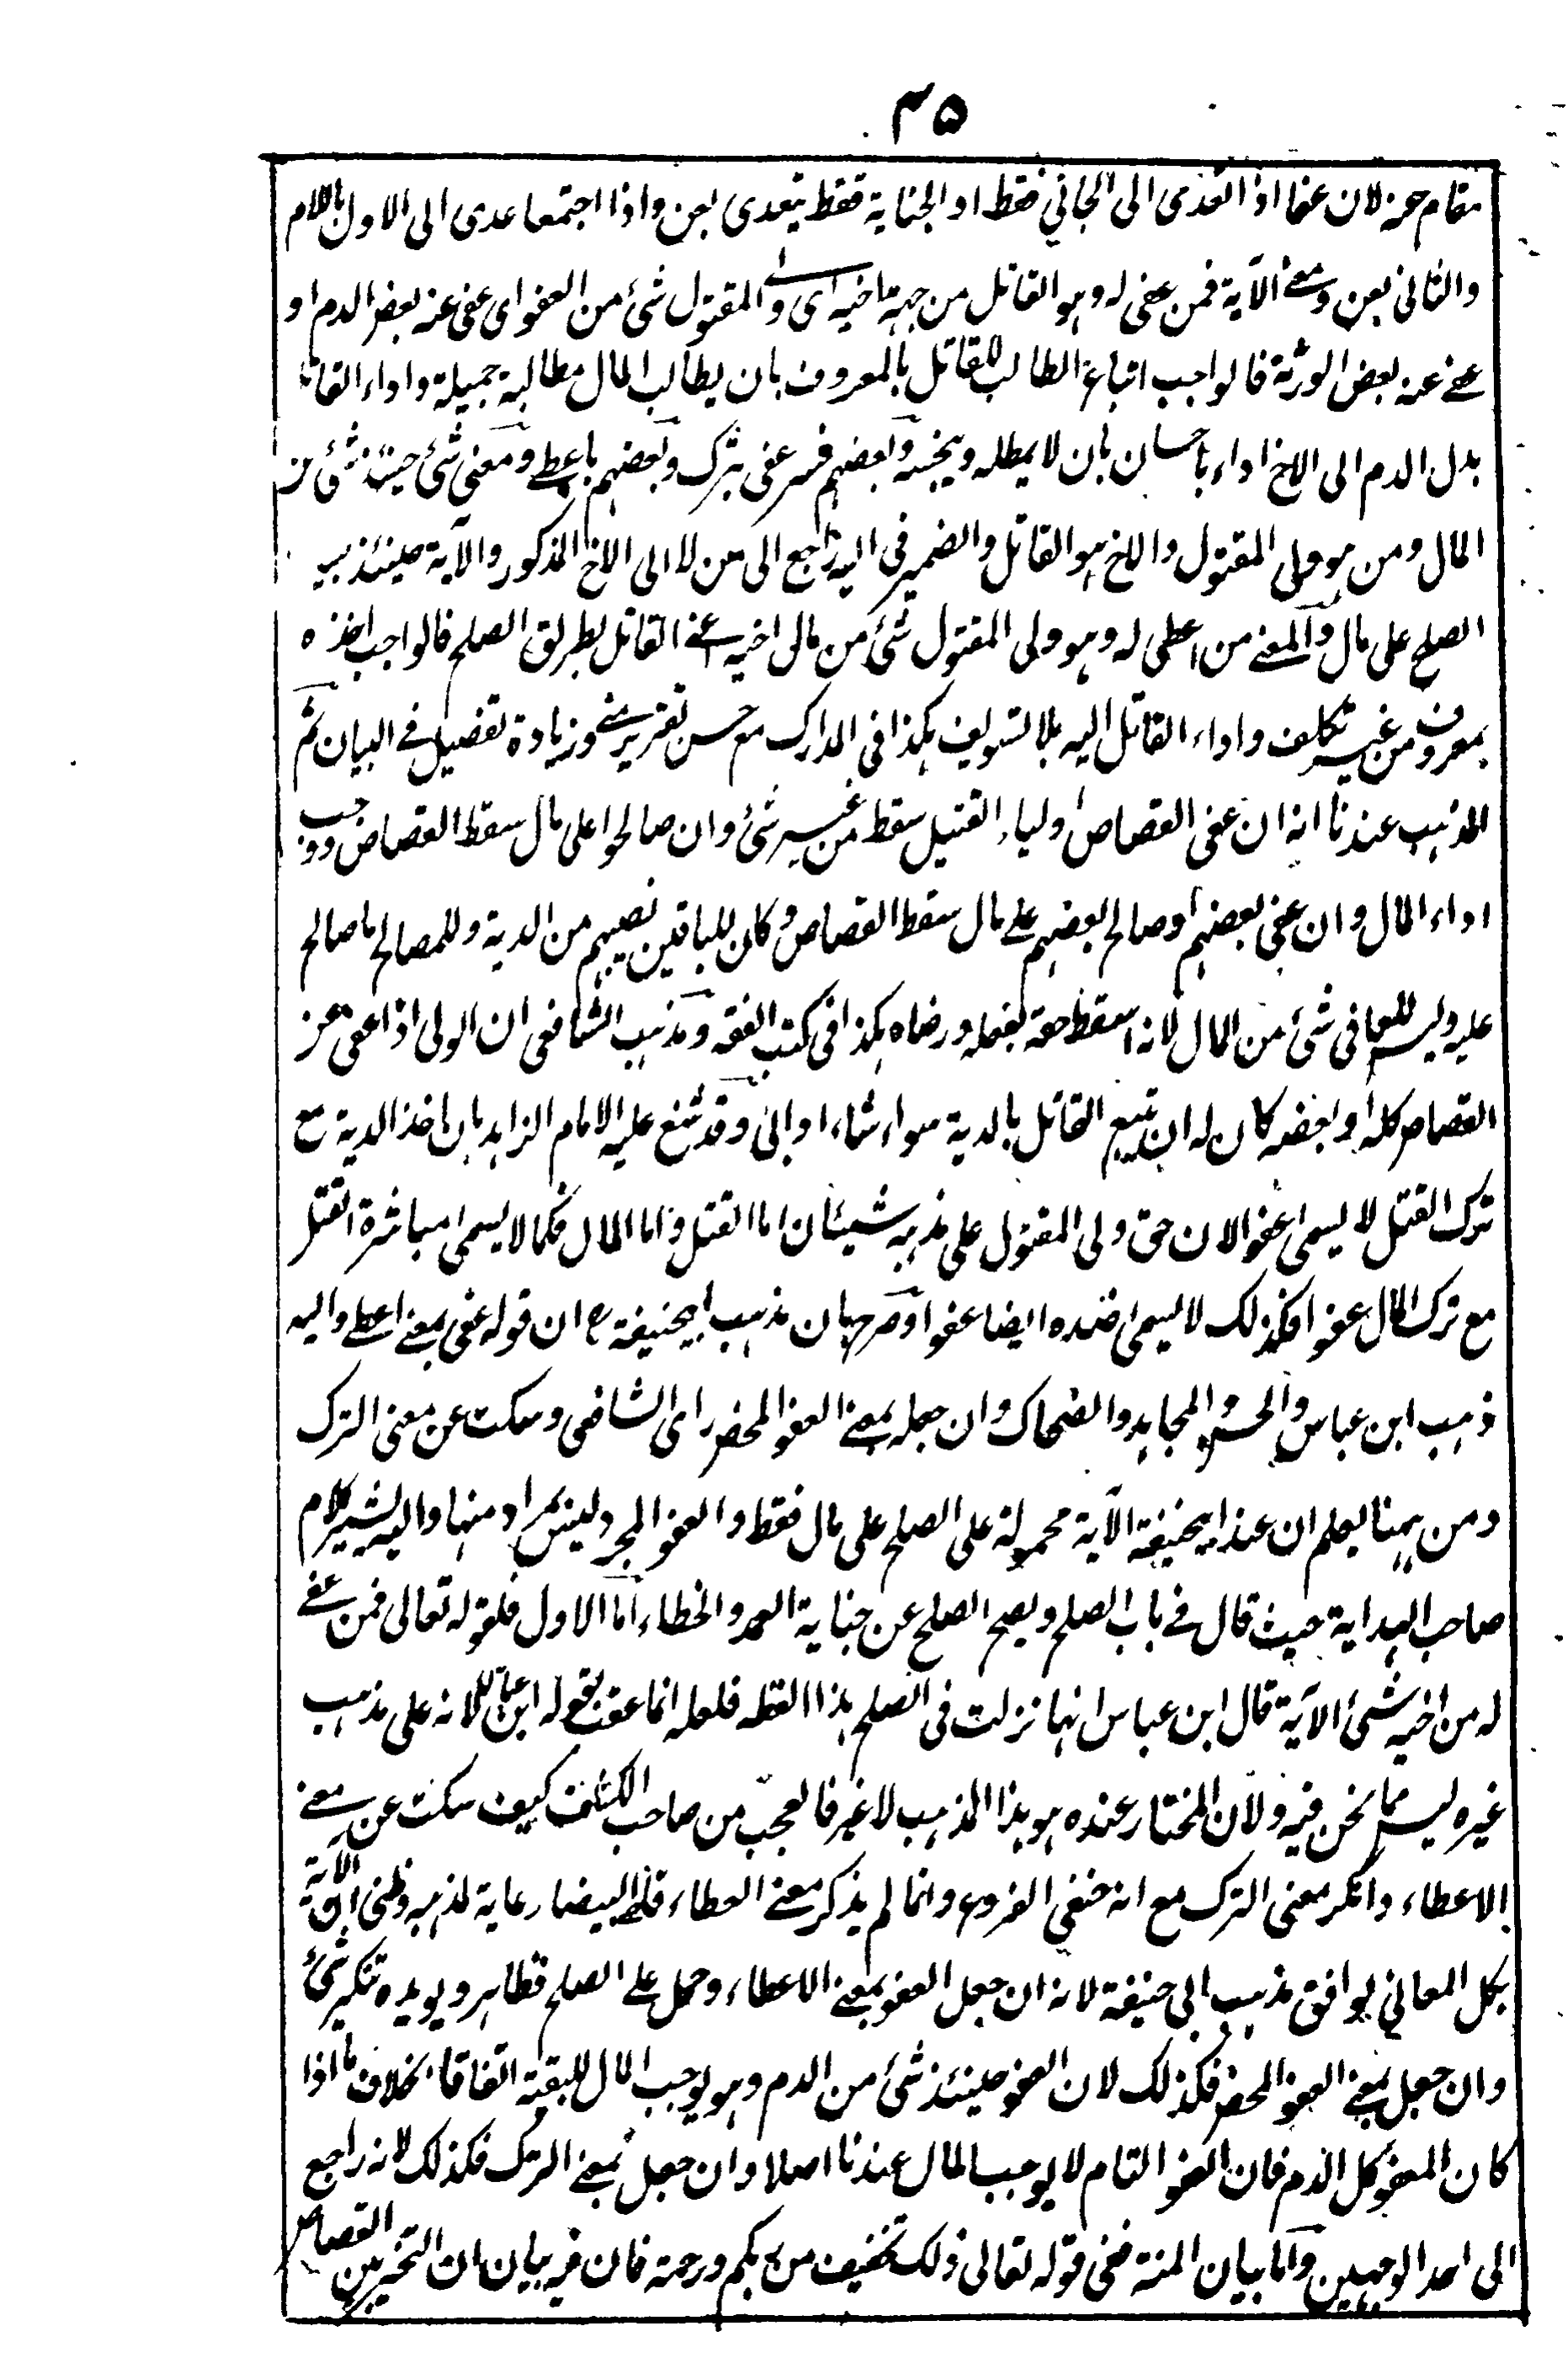 ٤٥
مقام عنه لان عفا اذا تعدى الى الجاني فقط او الجناية فقط يتعدى بعن واذا اجتمعا عدى الى الاول باللام
والثانى بعن ومعنى الآية فمن عفى له وهو القاتل من جهة اخيه اى ولى المقتول شئ من العفو اى عفى عنه بعض الدم او
عفى عنه بعض الورثة فالواجب اتباع الطالب للقاتل بالمعروف بان يطالب المال مطالبة جميلة واداء القاتل
بدل الدم الى الاخ اداء باحسان بان لا يمطله ويبخسه وبعضهم فسر عفى بترك وبعضهم باعطى ومعنى شئ حينئذ شئ من
المال ومن هو ولى المقتول والاخ هو القاتل والضمير فى اليه راجع الى من لا الى الاخ المذكور والآية حينئذ
الصلح على مال والمعنى من اعطى له وهو ولى المقتول شئ من مال اخيه اعنى القاتل بطريق الصلح فالواجب اخذه
بمعروف من غير تكلف واداء القاتل اليه بلا تسويف هكذا فى المدارك مع حسن تقرير منى وزيادة تفصيل فى البيان ثم
المذهب عندنا انه ان عفى القصاص اولياء القتيل سقط من غير شئ وان صالحوا على مال سقط القصاص ووجب
اداء المال وان عفى بعضهم او صالح بعضهم على مال سقط القصاص وكان للباقين نصيبهم من الدية وللمصالح ما صالح
عليه وليس للعافى شئ من المال لانه اسقط حقه بفعله ورضاه هكذا فى كتب الفقه ومذهب الشافعى ان الولى اذا عفى عن
القصاص كله او بعضه كان له ان يتبع القاتل بالدية سواء شاء او ابى وقد شنع عليه الامام الزاهد بان اخذ الدية مع
ترك القتل لا يسمى عفوا لان حق ولى المقتول على مذهبه شيئان اما القتل واما المال فكما لا يسمى مباشرة القتل
مع ترك المال عفوا فكذلك لا يسمى ضده ايضا عفوا وصرح بان مذهب ابيحنيفة رح ان قوله عفى بمعنى اعطى واليه
ذهب ابن عباس والحسن والمجاهد والضحاك وان جعله بمعنى العفو المحض راى الشافعى وسكت عن معنى الترك
ومن ههنا يعلم ان عند ابيحنيفة الآية محمولة على الصلح على مال فقط والعفو المجرد ليس بمراد منها واليه يشير كلام
صاحب الهداية حيث قال فى باب الصلح ويصح الصلح عن جناية العمد والخطاء اما الاول فلقوله تعالى فمن عفى
له من اخيه شئ الآية قال ابن عباس انها نزلت فى الصلح هذا لفظه فلعله انما عقب بقوله ابن عباس لانه على مذهب
غيره ليس مما نحن فيه ولان المختار عنده هو هذا المذهب لا غير فالعجب من صاحب الكشاف كيف سكت عن معنى
الاعطاء وانكر معنى الترك مع انه حنفى الفروع وانما لم يذكر معنى العطاء قاضى البيضاء رعاية لمذهبه وظنى ان الآية
بكل المعانى يوافق مذهب ابى حنيفة لانه ان جعل العفو بمعنى الاعطاء وحمل على الصلح فظاهر ويؤيده تنكير شئ
وان جعل بمعنى العفو المحض فكذلك لان العفو حينئذ شئ من الدم وهو يوجب المال للبقية اتفاقا بخلاف ما اذا
كان المعفو كل الدم فان العفو التام لا يوجب المال عندنا اصلا وان جعل بمعنى الترك فكذلك لانه راجع
الى احد الوجهين واما بيان المنة ففى قوله تعالى ذلك تخفيف من ربكم ورحمة فان فيه بيان ان التخيير بين القصاص